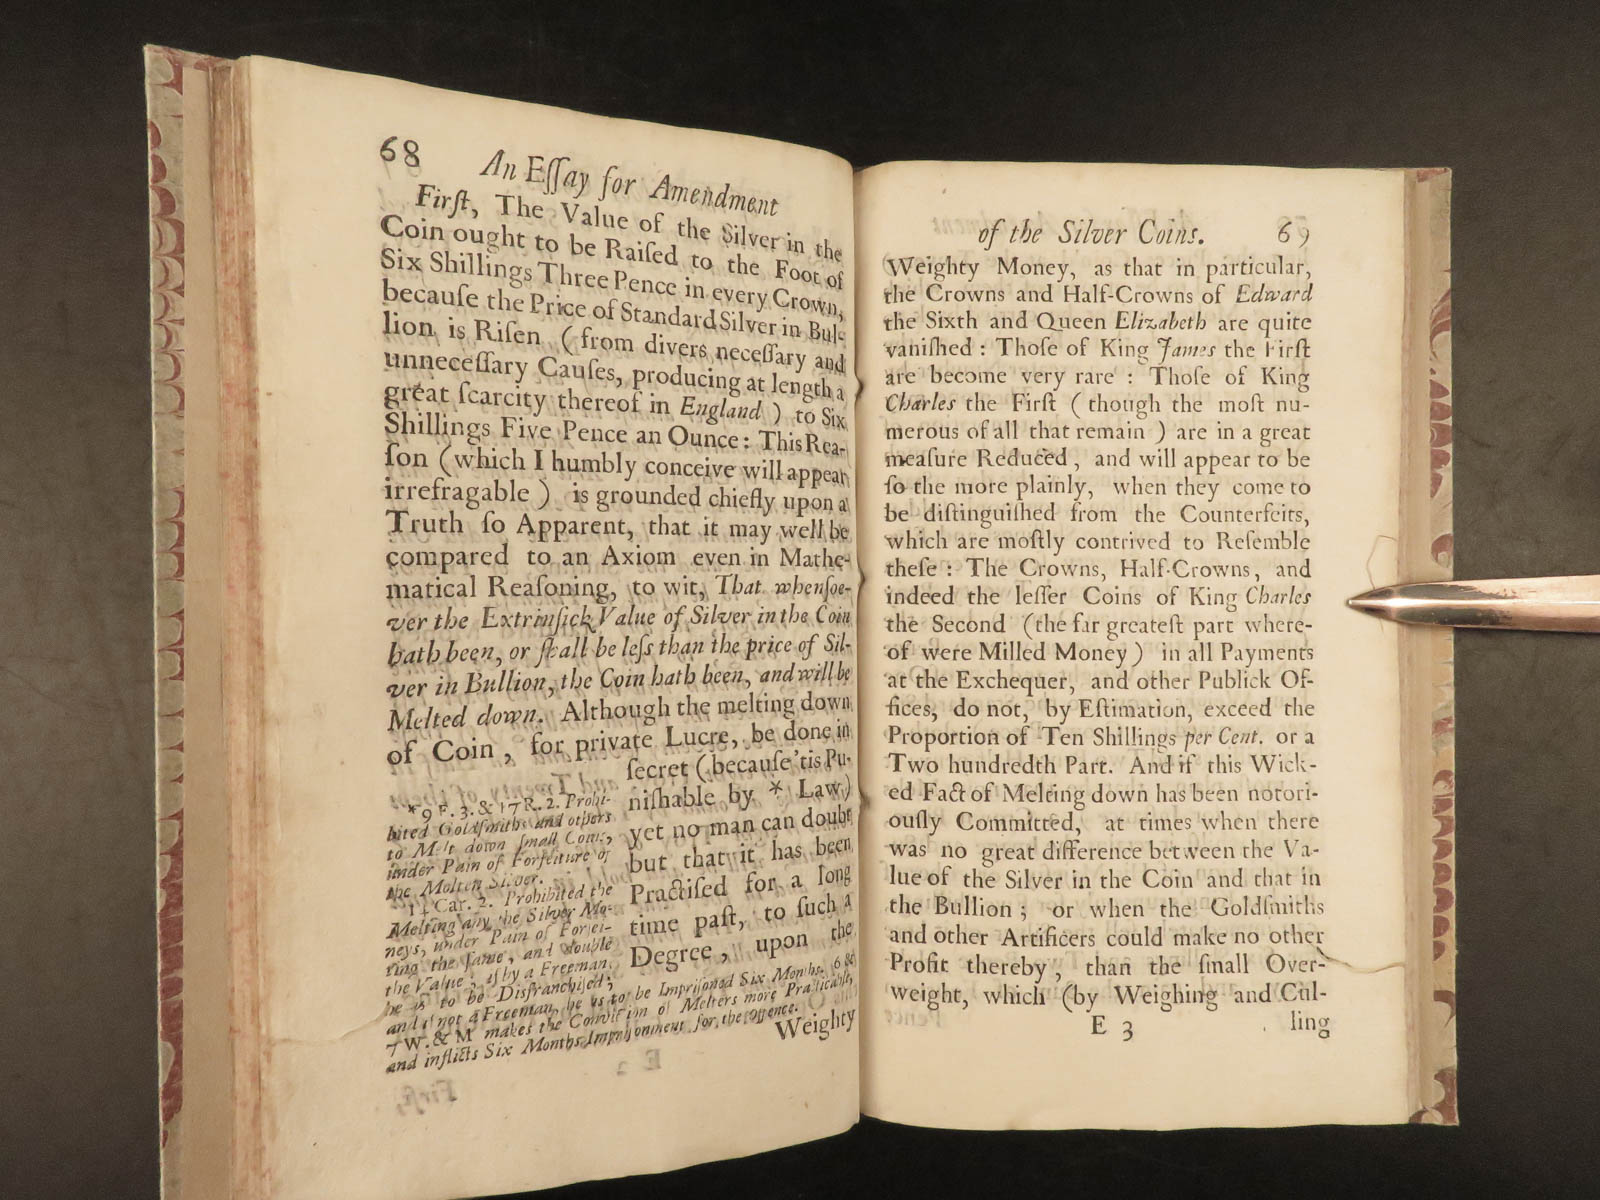 68
An Eſſay for Amendment
Firſt, The Value of the Silver in the
Coin ought to be Raiſed to the Foot of
Six Shillings Three Pence in every Crown,
becauſe the Price of Standard Silver in Bul-
lion is Riſen (from divers neceſſary and
unneceſſary Cauſes, producing at length a
great ſcarcity thereof in England) to Six
Shillings Five Pence an Ounce: This Rea-
ſon (which I humbly conceive will appear
irrefragable) is grounded chiefly upon a
Truth ſo Apparent, that it may well be
compared to an Axiom even in Mathe-
matical Reaſoning, to wit, That whenſoe-
ver the Extrinſick Value of Silver in the Coin
hath been, or ſhall be leſs than the price of Sil-
ver in Bullion, the Coin hath been, and will be
Melted down. Although the melting down
of Coin, for private Lucre, be done in
ſecret (becauſe 'tis Pu-
niſhable by * Law)
yet no man can doubt
but that it has been
Practiſed for a long
time paſt, to ſuch a
Degree, upon the
* 9 F. 3. & 17 R. 2. Prohi-
bited Goldſmiths and others
to Melt down ſmall Coins,
under Pain of Forfeiture of
the Molten Silver.
14 Car. 2. Prohibited the
Melting any the Silver Mo-
neys, under Pain of Forfei-
ting the ſame, and double
the Value; if by a Freeman,
he is to be Disfranchiſed;
and if not a Freeman, he is to be Impriſoned Six Months. 6 &
7 W. & M makes the Conviction of Melters more Practicable,
and inflicts Six Months Impriſonment for the offence.
Weighty
of the Silver Coins. 69
Weighty Money, as that in particular,
the Crowns and Half-Crowns of Edward
the Sixth and Queen Elizabeth are quite
vaniſhed: Thoſe of King James the Firſt
are become very rare: Thoſe of King
Charles the Firſt (though the moſt nu-
merous of all that remain) are in a great
meaſure Reduced, and will appear to be
ſo the more plainly, when they come to
be diſtinguiſhed from the Counterfeits,
which are moſtly contrived to Reſemble
theſe: The Crowns, Half-Crowns, and
indeed the leſſer Coins of King Charles
the Second (the far greateſt part where-
of were Milled Money) in all Payments
at the Exchequer, and other Publick Of-
fices, do not, by Eſtimation, exceed the
Proportion of Ten Shillings per Cent. or a
Two hundredth Part. And if this Wick-
ed Fact of Melting down has been notori-
ouſly Committed, at times when there
was no great difference between the Va-
lue of the Silver in the Coin and that in
the Bullion; or when the Goldſmiths
and other Artificers could make no other
Profit thereby, than the ſmall Over-
weight, which (by Weighing and Cul-
E 3
ling